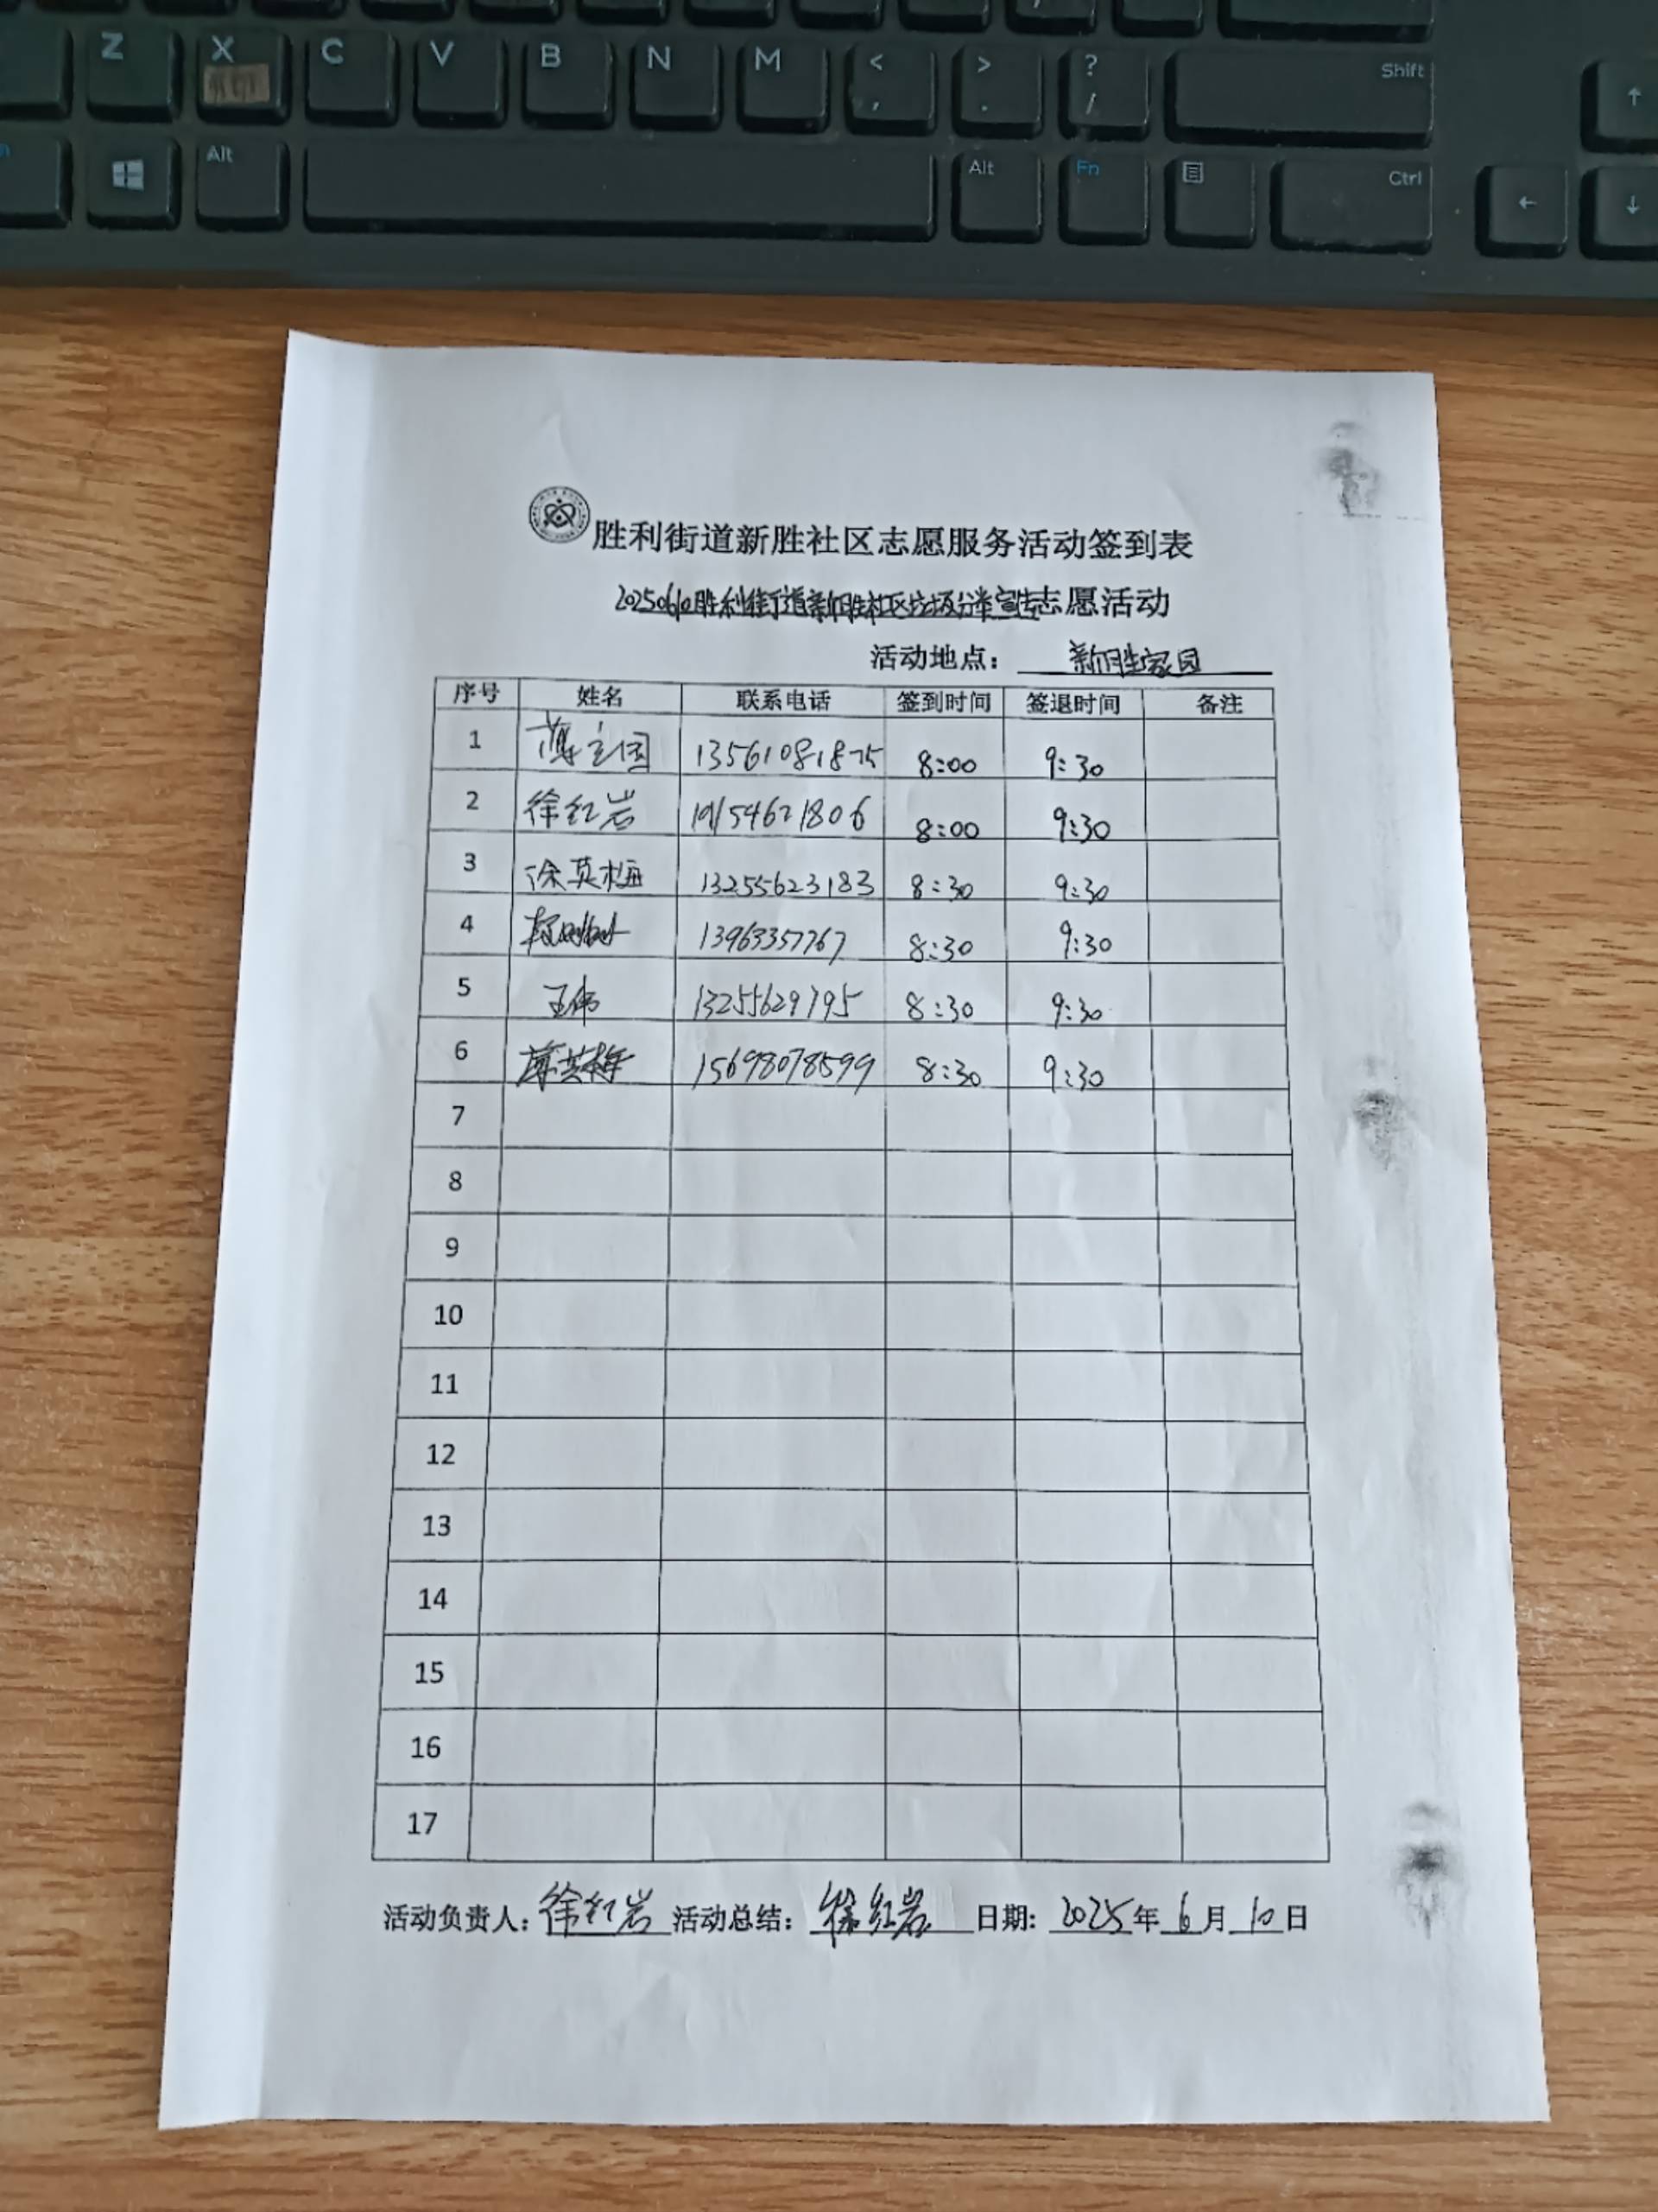 Z X C V B N M < , > . ? / Shift ↑
Alt Alt Fn Ctrl ← ↓
胜利街道新胜社区志愿服务活动签到表
20250610胜利街道新胜社区垃圾分类宣传志愿活动
活动地点: 新胜家园
序号 姓名 联系电话 签到时间 签退时间 备注
1 13561081875 8:00 9:30
2 徐红岩 54621806 8:00 9:30
3 徐英梅 13255623183 8:30 9:30
4 13963357767 8:30 9:30
5 王伟 13255629795 8:30 9:30
6 15698078599 8:30 9:30
7
8
9
10
11
12
13
14
15
16
17
活动负责人: 徐红岩 活动总结: 徐红岩 日期: 2025年 6 月 10 日